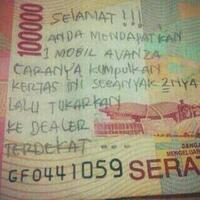 100000
SELAMAT !!!
ANDA MENDAPATKAN
1 MOBIL AVANZA
CARANYA KUMPULKAN
KERTAS INI SEBANYAK 2NYA
LALU TUKARKAN
KE DEALER
TERDEKAT ...
DENGAN
MENGELUAR
GF0441059
SERA